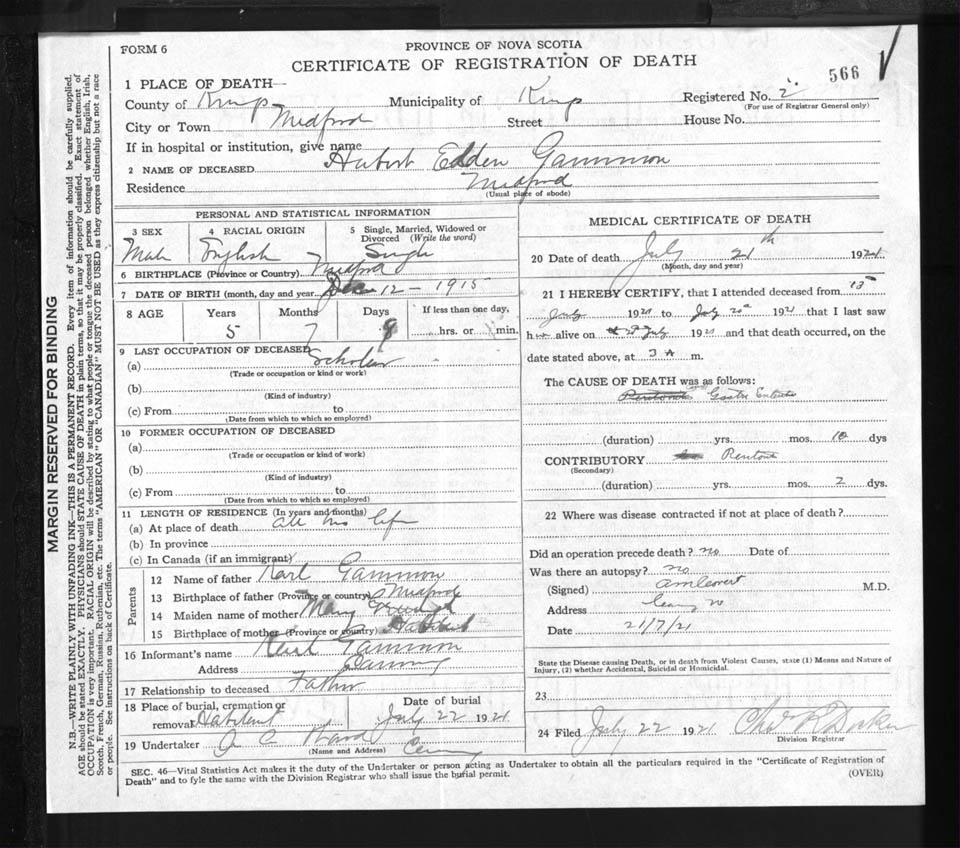 566
FORM 6
PROVINCE OF NOVA SCOTIA
CERTIFICATE OF REGISTRATION OF DEATH
1 PLACE OF DEATH
County of Kings Municipality of Kings Registered No.
(For use of Registrar General only)
City or Town Medford Street House No.
If in hospital or institution, give name
2 NAME OF DECEASED Hubert Elden Gammon
Residence Medford
(Usual place of abode)
PERSONAL AND STATISTICAL INFORMATION
3 SEX Male
4 RACIAL ORIGIN English
5 Single, Married, Widowed or Divorced (Write the word) Single
6 BIRTHPLACE (Province or Country) Medford
7 DATE OF BIRTH (month, day and year) Dec 12 - 1915
8 AGE Years Months Days If less than one day,
5 7 9 hrs. or min.
9 LAST OCCUPATION OF DECEASED
(a) Scholar
(Trade or occupation or kind or work)
(b)
(Kind of industry)
(c) From to
(Date from which to which so employed)
10 FORMER OCCUPATION OF DECEASED
(a)
(Trade or occupation or kind of work)
(b)
(Kind of industry)
(c) From to
(Date from which to which so employed)
11 LENGTH OF RESIDENCE (In years and months)
(a) At place of death all his life
(b) In province
(c) In Canada (if an immigrant)
Parents
12 Name of father Karl Gammon
13 Birthplace of father (Province or country) Medford
14 Maiden name of mother Mary
15 Birthplace of mother (Province or country) Habitant
16 Informant's name Karl Gammon
Address Canning
17 Relationship to deceased Father
18 Place of burial, cremation or removal Habitant
Date of burial July 22 1921
19 Undertaker
(Name and Address)
MEDICAL CERTIFICATE OF DEATH
20 Date of death July 21th 1921
(Month, day and year)
21 I HEREBY CERTIFY, that I attended deceased from 15
July 1921 to July 20th 1921 that I last saw
h alive on July 1921 and that death occurred, on the
date stated above, at 3 A m.
The CAUSE OF DEATH was as follows:
Gastro Enteritis
(duration) yrs. mos. 10 dys
CONTRIBUTORY
(Secondary)
(duration) yrs. mos. 2 dys.
22 Where was disease contracted if not at place of death?
Did an operation precede death? no Date of
Was there an autopsy? no
(Signed) M.D.
Address
Date 21/7/21
State the Disease causing Death, or in death from Violent Causes, state (1) Means and Nature of
Injury, (2) whether Accidental, Suicidal or Homicidal.
23
24 Filed July 22 1921
Division Registrar
SEC. 46—Vital Statistics Act makes it the duty of the Undertaker or person acting as Undertaker to obtain all the particulars required in the "Certificate of Registration of
Death" and to fyle the same with the Division Registrar who shall issue the burial permit.
(OVER)
MARGIN RESERVED FOR BINDING
N.B.—WRITE PLAINLY WITH UNFADING INK—THIS IS A PERMANENT RECORD. Every item of information should be carefully supplied.
AGE should be stated EXACTLY. PHYSICIANS should STATE CAUSE OF DEATH in plain terms, so that it may be properly classified. Exact statement of
OCCUPATION is very important. RACIAL ORIGIN will be described by stating to what people or tongue the deceased person belonged whether English, Irish,
Scotch, French, German, Russian, Ruthenian, etc. The terms "AMERICAN" OR "CANADIAN" MUST NOT BE USED as they express citizenship but not a race
or people. See instructions on back of Certificate.